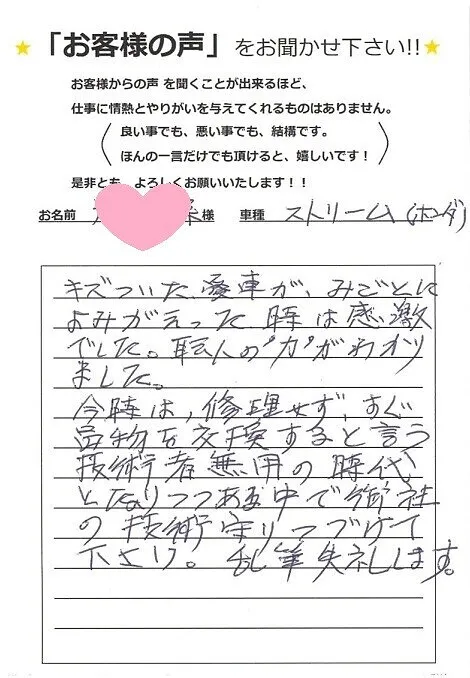 ★「お客様の声」をお聞かせ下さい!!★
お客様からの声 を聞くことが出来るほど、
仕事に情熱とやりがいを与えてくれるものはありません。
良い事でも、悪い事でも、結構です。
ほんの一言だけでも頂けると、嬉しいです！
是非とも、よろしくお願いいたします！！
お名前 様 車種 ストリーム(ホンダ)
キズついた愛車が、みごとに
よみがえった時は感激
でした。職人の"力"がわかり
ました。
今時は、修理せず、すぐ
品物を交換すると言う
技術者無用の時代
となりつつある中で御社
の技術守りつづけて
下さい。乱筆失礼します。